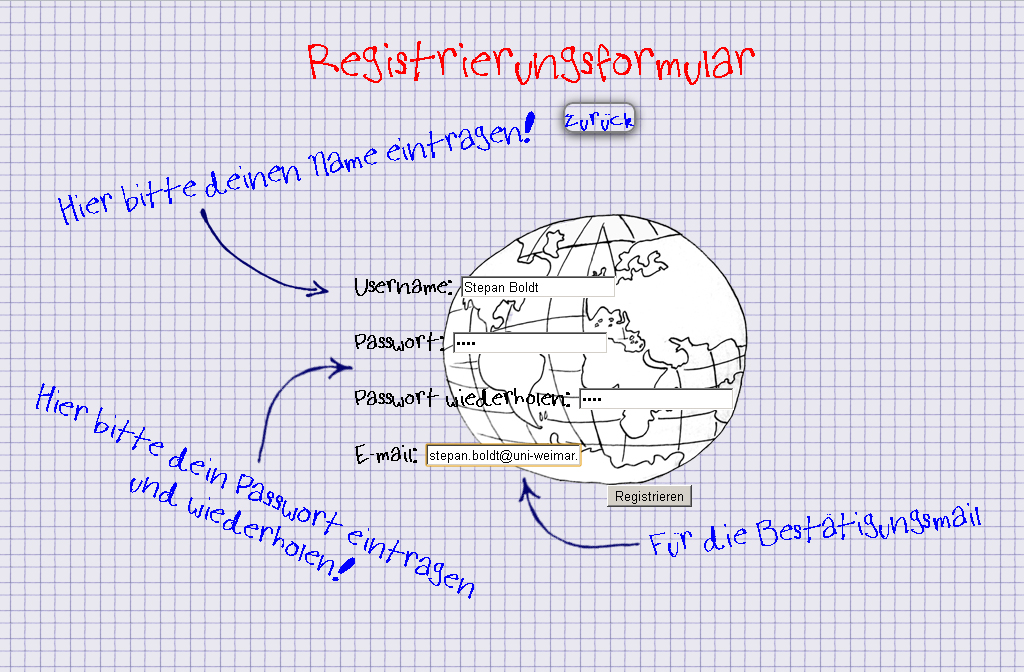 Registrierungsformular
zurück
Hier bitte deinen Name eintragen!
Username: Stepan Boldt
Passwort: ••••
Passwort wiederholen: ••••
E-mail: stepan.boldt@uni-weimar.
Registrieren
Hier bitte dein Passwort eintragen
und wiederholen!
Für die Bestätigungsmail